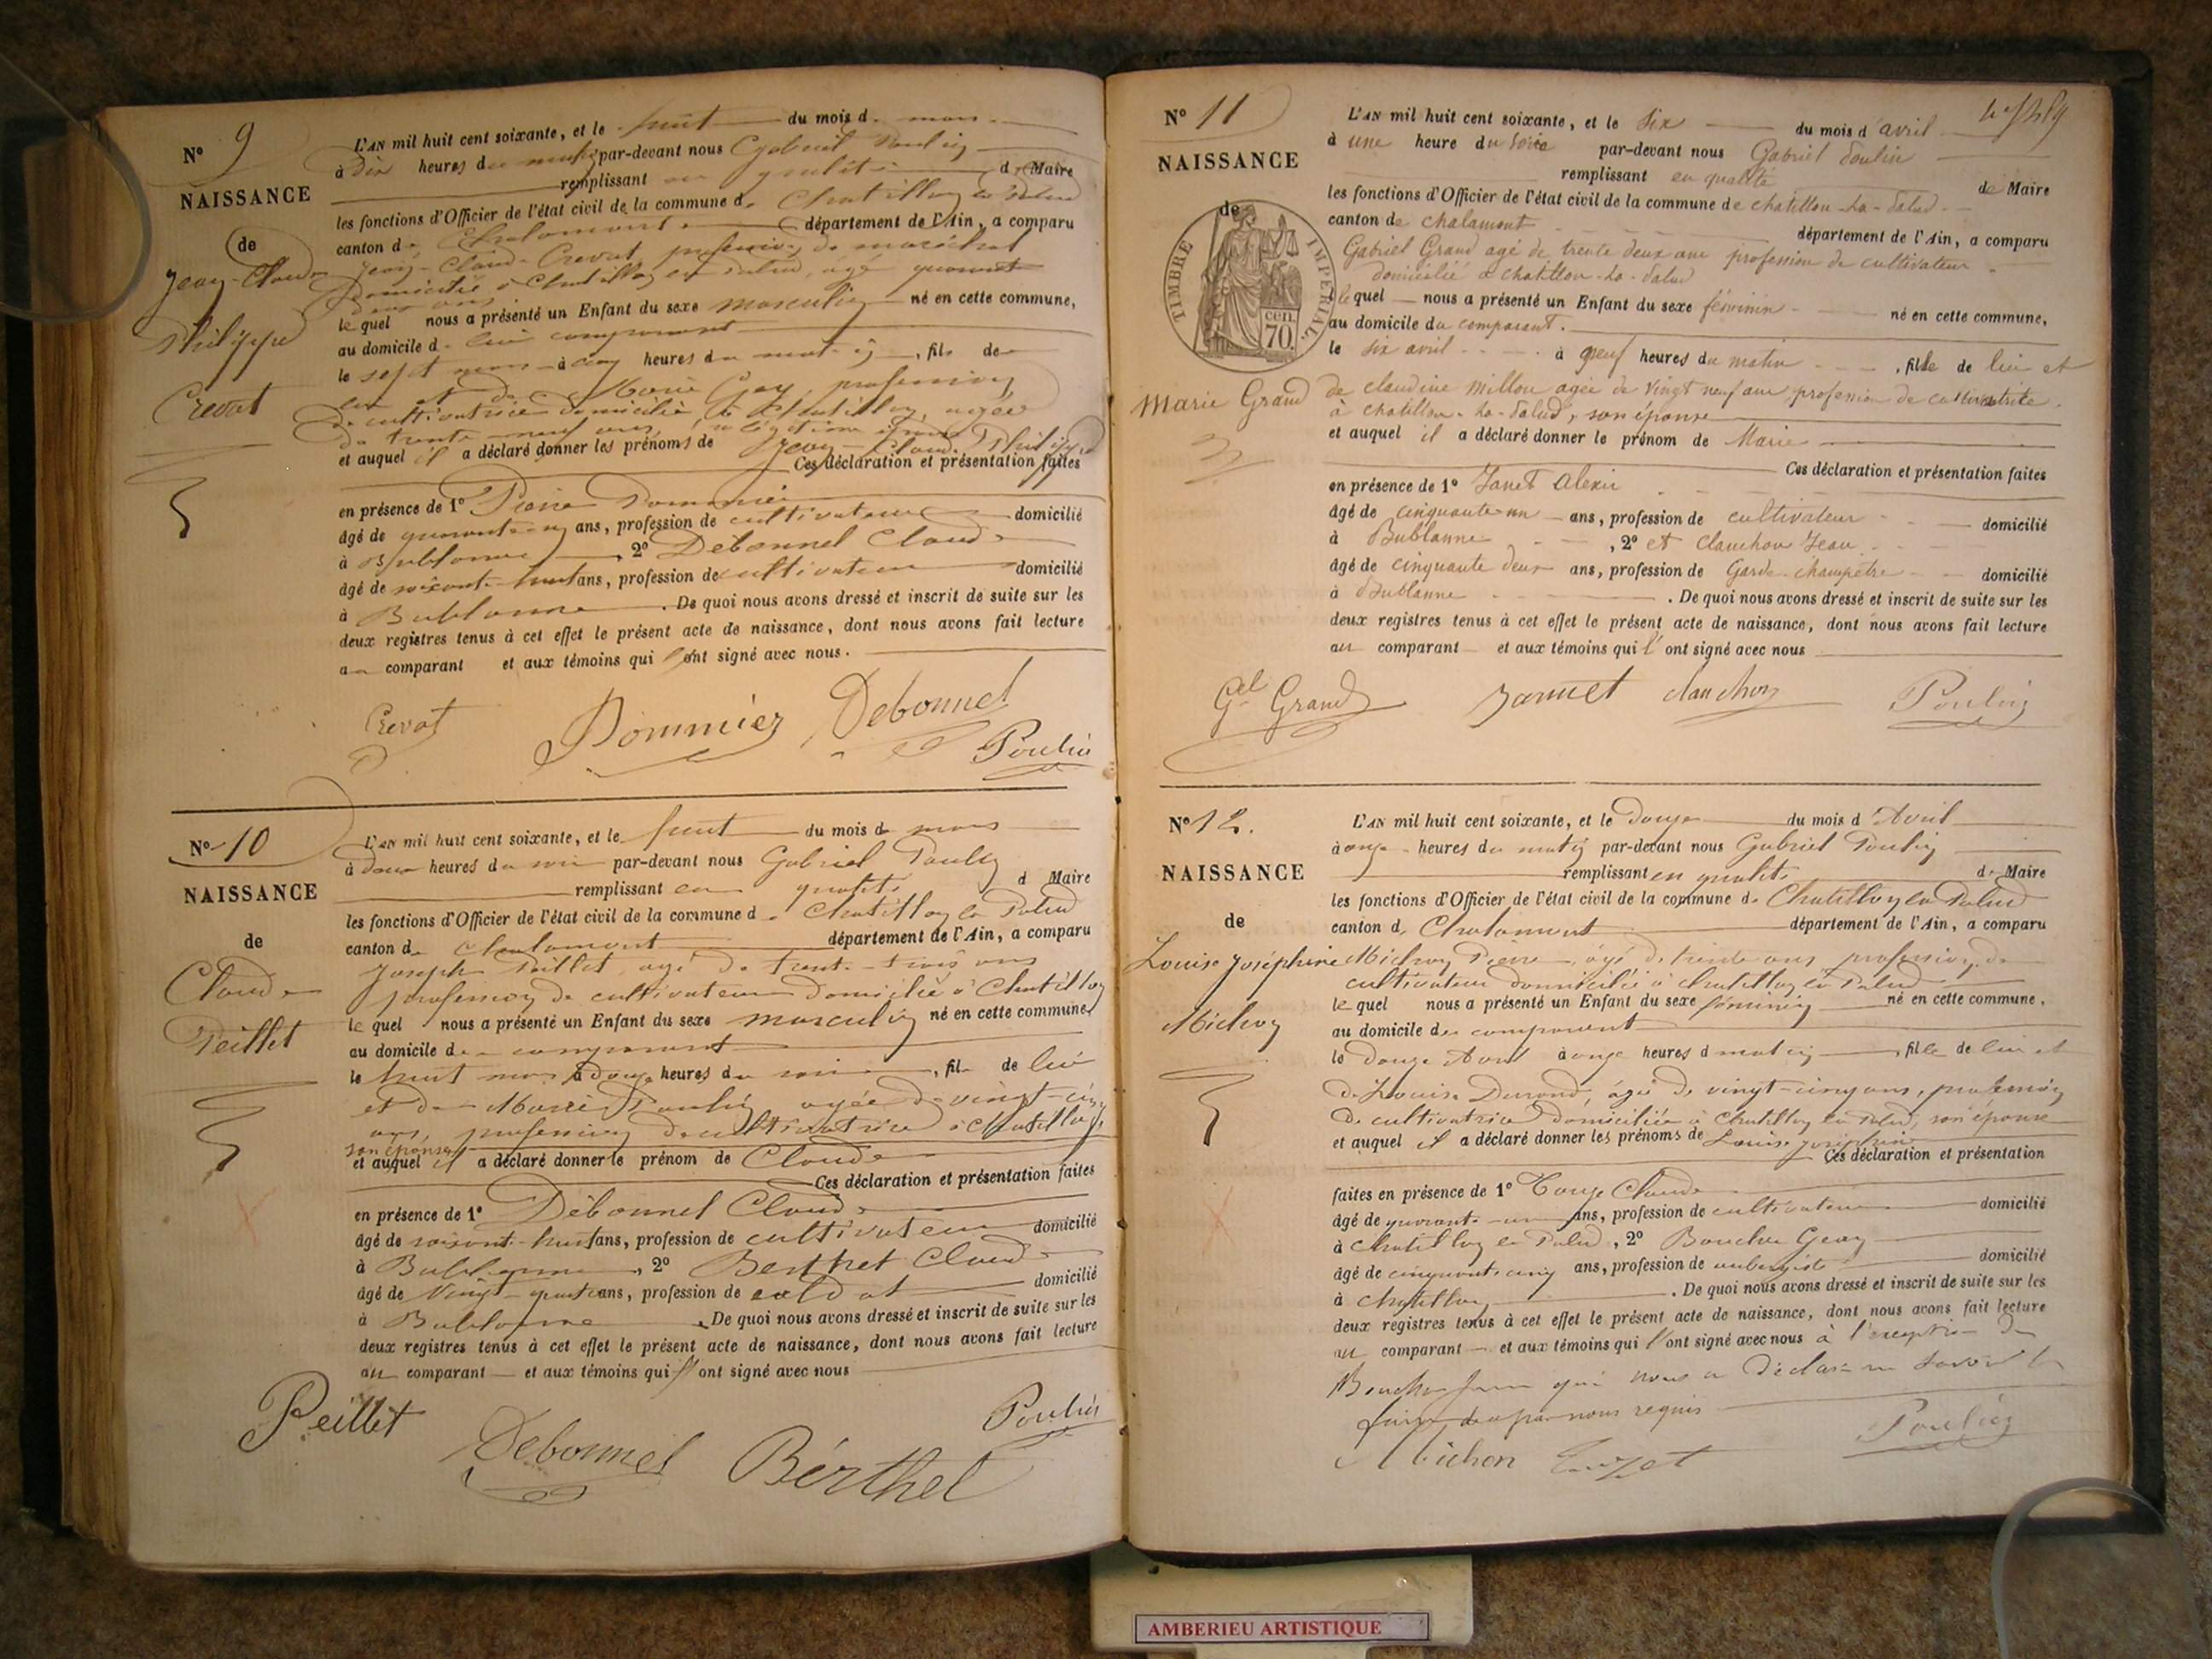 N° 9
NAISSANCE
de
Jean-Claude
Philippe
Crevat
L'AN mil huit cent soixante, et le huit du mois de mars
à dix heures du matin par-devant nous Gabriel Poulin
remplissant en qualité de Maire
les fonctions d'Officier de l'état civil de la commune de Chatillon la Palud
canton de Chalamont département de l'Ain, a comparu
Jean-Claude Crevat, profession de maréchal
domicilié à Chatillon la Palud, âgé quarante
deux ans
le quel nous a présenté un Enfant du sexe masculin né en cette commune,
au domicile de lui comparant
le sept mars à cinq heures du matin, fils de
lui et de Marie Gay, profession
de cultivatrice domicilié à Chatillon, agée
de trente-neuf ans, sa légitime épouse
et auquel il a déclaré donner les prénoms de Jean-Claude Philippe
Ces déclaration et présentation faites
en présence de 1° Pierre Pommier
âgé de quarante-un ans, profession de cultivateur domicilié
à Bublanne, 2° Debonnel Claude
âgé de soixante-huit ans, profession de cultivateur domicilié
à Bublanne. De quoi nous avons dressé et inscrit de suite sur les
deux registres tenus à cet effet le présent acte de naissance, dont nous avons fait lecture
au comparant et aux témoins qui l'ont signé avec nous.
Crevat Pommier Debonnel
Poulin
N° 10
NAISSANCE
de
Claude
Peillet
L'AN mil huit cent soixante, et le huit du mois de mars
à deux heures du soir par-devant nous Gabriel Poulin
remplissant en qualité d Maire
les fonctions d'Officier de l'état civil de la commune de Chatillon la Palud
canton de Chalamont département de l'Ain, a comparu
Joseph Peillet, agé de trente-trois ans
profession de cultivateur domicilié à Chatillon
le quel nous a présenté un Enfant du sexe masculin né en cette commune,
au domicile de comparant
le huit mars à douze heures du soir, fils de lui
et de Marie Poulin agée de vingt-cinq
ans, profession de cultivatrice à Chatillon,
son épouse
et auquel il a déclaré donner le prénom de Claude
Ces déclaration et présentation faites
en présence de 1° Debonnel Claude
âgé de soixante-huit ans, profession de cultivateur domicilié
à Bublanne, 2° Berthet Claude
âgé de vingt-quatre ans, profession de soldat domicilié
à Bublanne. De quoi nous avons dressé et inscrit de suite sur les
deux registres tenus à cet effet le présent acte de naissance, dont nous avons fait lecture
au comparant et aux témoins qui l'ont signé avec nous
Peillet Poulin
Debonnel Bérthet
N° 11
NAISSANCE
de
TIMBRE IMPÉRIAL
70 cen.
Marie Grand
L'AN mil huit cent soixante, et le six du mois d'avril
à une heure du soir par-devant nous Gabriel Poulin
remplissant en qualité de Maire
les fonctions d'Officier de l'état civil de la commune de chatillon-la-Palud
canton de chalamont département de l'Ain, a comparu
Gabriel Grand agé de trente deux ans profession de cultivateur
domicilié à chatillon-la-Palud
lequel nous a présenté un Enfant du sexe féminin né en cette commune,
au domicile du comparant.
le six avril à neuf heures du matin, fille de lui et
de claudine Millon agée de vingt neuf ans, profession de cultivatrice
à chatillon-la-Palud, son épouse
et auquel il a déclaré donner le prénom de Marie
Ces déclaration et présentation faites
en présence de 1° Janet Alexis
âgé de cinquante un ans, profession de cultivateur domicilié
à Bublanne, 2° et Clanchon Jean
âgé de cinquante deux ans, profession de Garde-champêtre domicilié
à Bublanne. De quoi nous avons dressé et inscrit de suite sur les
deux registres tenus à cet effet le présent acte de naissance, dont nous avons fait lecture
au comparant et aux témoins qui l'ont signé avec nous
Gel Grand Jannet clanchon Poulin
N° 12.
NAISSANCE
de
Louise Joséphine
Michon
L'AN mil huit cent soixante, et le douze du mois d'Avril
à onze heures du matin par-devant nous Gabriel Poulin
remplissant en qualité de Maire
les fonctions d'Officier de l'état civil de la commune de Chatillon la Palud
canton de Chalamont département de l'Ain, a comparu
Michon Pierre, âgé de trente ans, profession de
cultivateur domicilié à Chatillon la Palud
le quel nous a présenté un Enfant du sexe féminin né en cette commune,
au domicile de comparant
le douze Avril à onze heures d matin, fille de lui et
de Louise Durand, âgée de vingt-cinq ans, profession
de cultivatrice domiciliée à Chatillon la Palud, son épouse
et auquel il a déclaré donner les prénoms de Louise Joséphine
Ces déclaration et présentation
faites en présence de 1° Claude
âgé de quarante-un ans, profession de cultivateur domicilié
à Chatillon la Palud, 2° Boucher Jean
âgé de cinquante-cinq ans, profession de aubergiste domicilié
à Chatillon. De quoi nous avons dressé et inscrit de suite sur les
deux registres tenus à cet effet le présent acte de naissance, dont nous avons fait lecture
au comparant et aux témoins qui l'ont signé avec nous à l'exception de
Boucher Jean qui nous a déclaré ne savoir le
faire, de par nous requis
Michon Poulin
AMBERIEU ARTISTIQUE